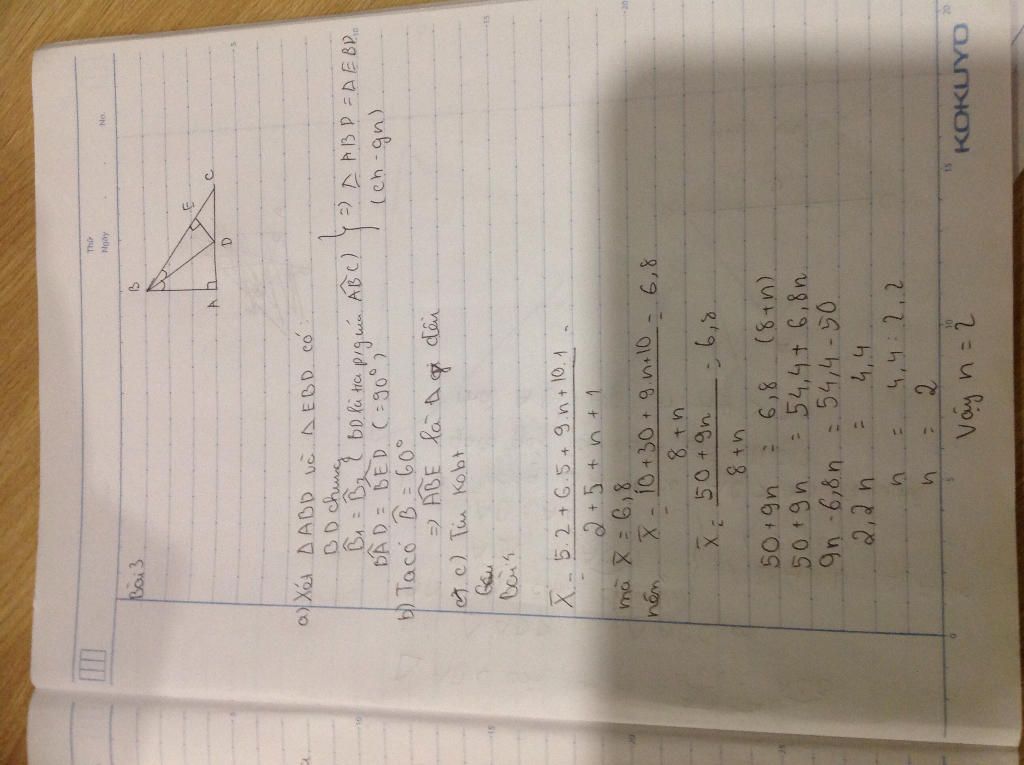 Thứ
Ngày
No.
Bài 3
B
A
D
E
C
a) Xét ΔABD và ΔEBD có
BD chung
B̂1 = B̂2 ( BD là tia p/g của ABC )
BAD = BED ( = 90° )
} => ΔABD = ΔEBD
(ch - gn)
b) Ta có B̂ = 60°
=> ABE là Δ đều
c)
Bài 4
X̄ = 5.2 + 6.5 + 9.n + 10.1 =
2 + 5 + n + 1
mà X̄ = 6,8
nên X̄ = 10 + 30 + 9.n + 10 = 6,8
8 + n
X̄ = 50 + 9n = 6,8
8 + n
50 + 9n = 6,8 (8 + n)
50 + 9n = 54,4 + 6,8n
9n - 6,8n = 54,4 - 50
2,2n = 4,4
n = 4,4 : 2,2
n = 2
Vậy n = 2
KOKUYO